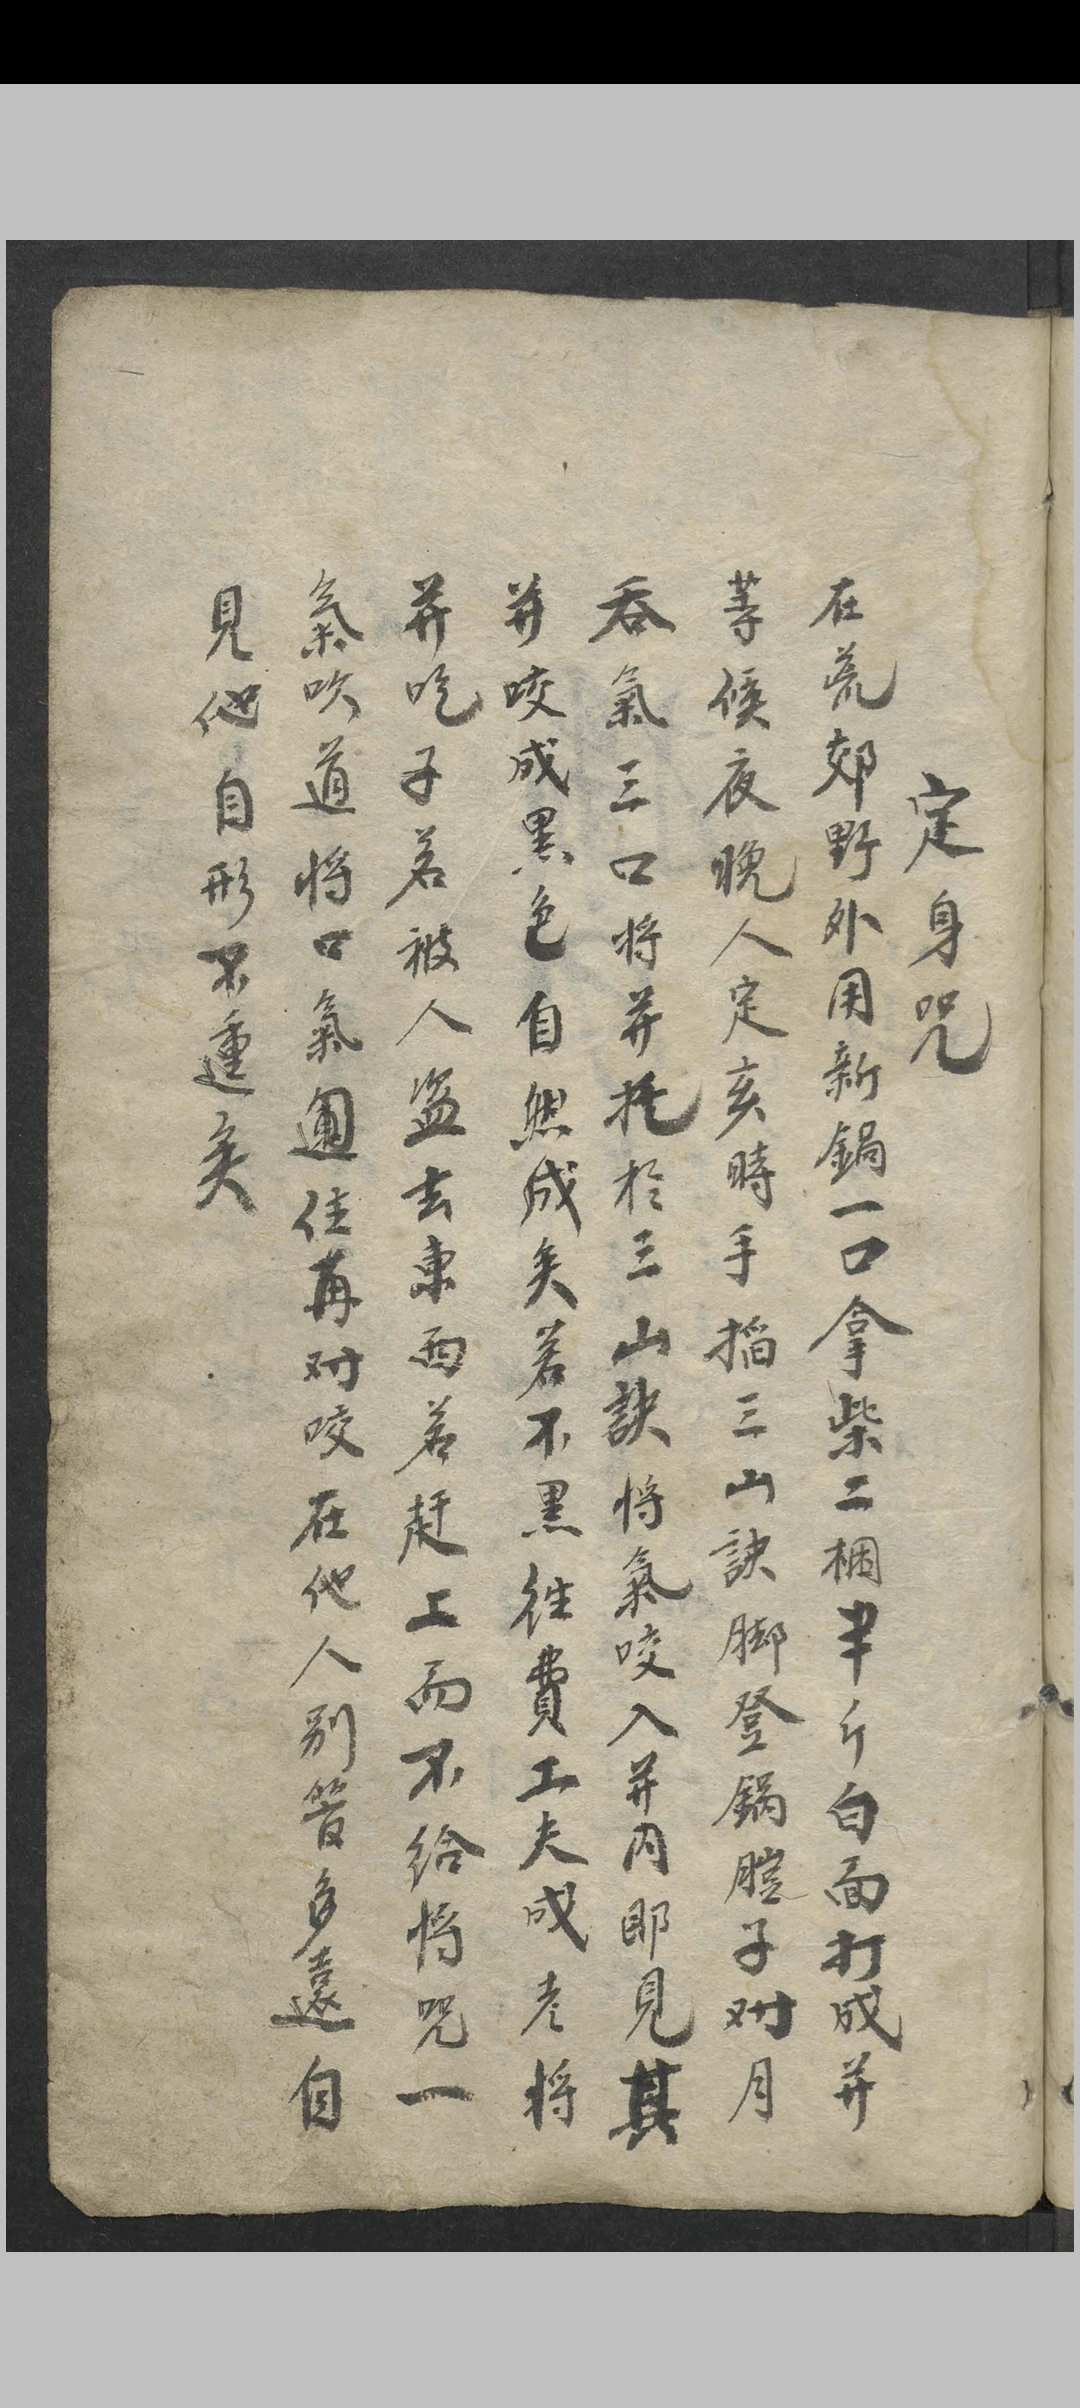 定身咒
在荒郊野外用新鍋一口拿柴二梱半斤白面打成并
等候夜晚人定亥時手掐三山訣脚登鍋腔子对月
吞氣三口将并托於三山訣将氣咬入并内即見其
并咬成黑色自然成矣若不黑往費工夫成者将
并吃子若被人盗去東西若赶上而不给将咒一
氣吹道将口氣閉住再对咬在他人别管多遠自
見他自形不運矣